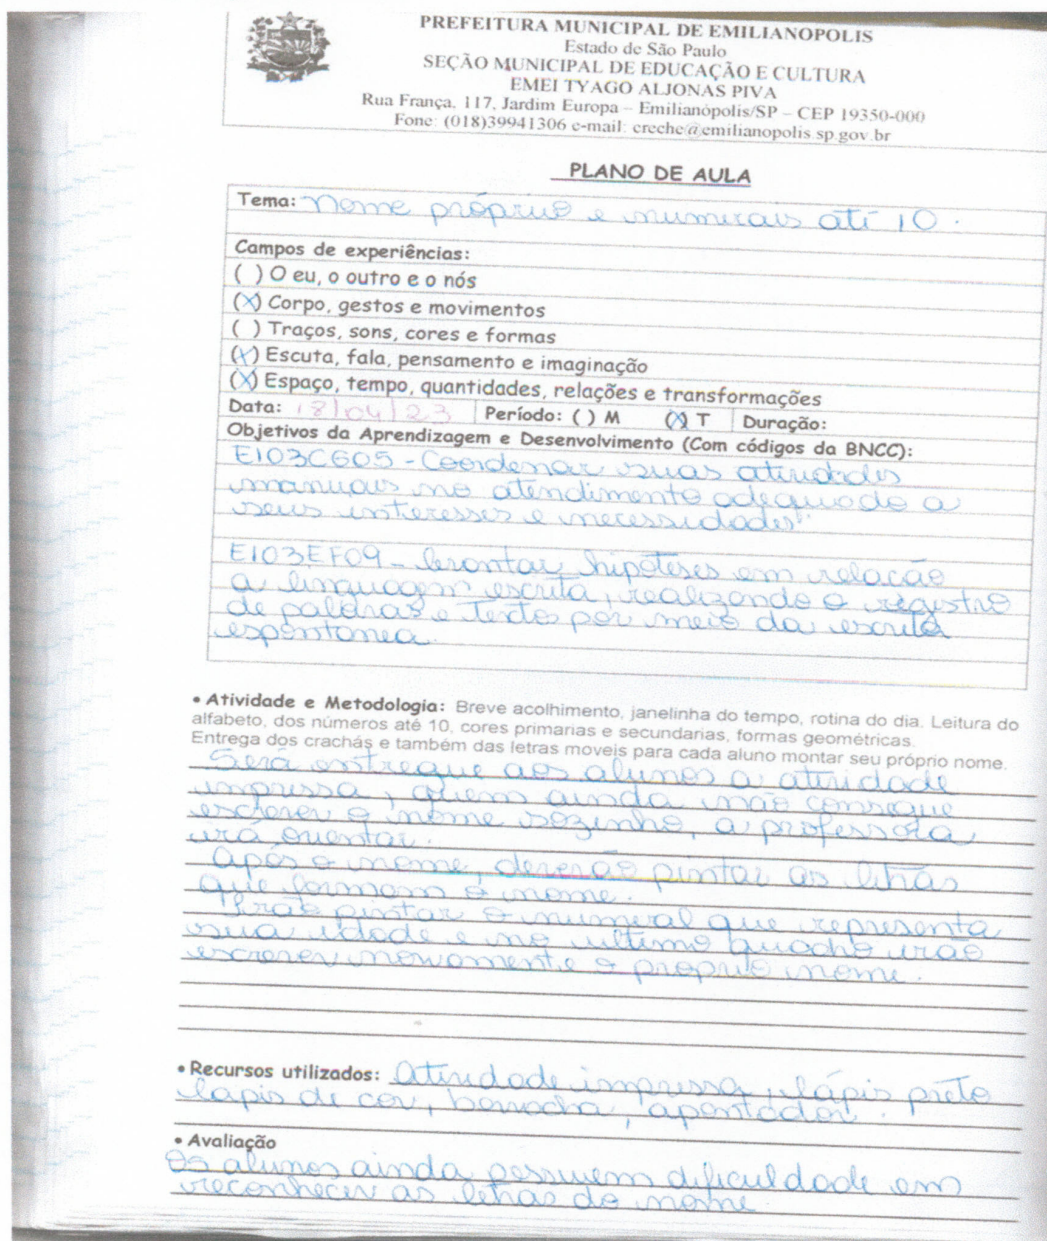 PREFEITURA MUNICIPAL DE EMILIANOPOLIS
Estado de São Paulo
SEÇÃO MUNICIPAL DE EDUCAÇÃO E CULTURA
EMEI TYAGO ALJONAS PIVA
Rua França, 117, Jardim Europa – Emilianópolis/SP – CEP 19350-000
Fone: (018)39941306 e-mail: creche@emilianopolis.sp.gov.br
PLANO DE AULA
Tema: Nome próprio e numerais até 10.
Campos de experiências:
( ) O eu, o outro e o nós
(X) Corpo, gestos e movimentos
( ) Traços, sons, cores e formas
(X) Escuta, fala, pensamento e imaginação
(X) Espaço, tempo, quantidades, relações e transformações
Data: 18/04/23 Período: ( ) M (X) T Duração:
Objetivos da Aprendizagem e Desenvolvimento (Com códigos da BNCC):
EI03CG05 - Coordenar suas atividades
manuais no atendimento adequado a
seus interesses e necessidades.
EI03EF09 - levantar hipóteses em relação
a linguagem escrita, realizando o registro
de palavras e textos por meio da escrita
espontanea.
• Atividade e Metodologia: Breve acolhimento, janelinha do tempo, rotina do dia. Leitura do
alfabeto, dos números até 10, cores primarias e secundarias, formas geométricas.
Entrega dos crachás e também das letras moveis para cada aluno montar seu próprio nome.
Será entregue aos alunos a atividade
impressa, quem ainda não consegue
escrever o nome sozinho, a professora
irá orientar.
Após o nome, deverão pintar as letras
que formam o nome.
Irão pintar o numeral que representa
sua idade e no ultimo quadro irão
escrever novamente o proprio nome.
• Recursos utilizados: Atividade impressa, lápis preto
lapis de cor, borracha, apontador.
• Avaliação
Os alunos ainda possuem dificuldade em
reconhecer as letras do nome.